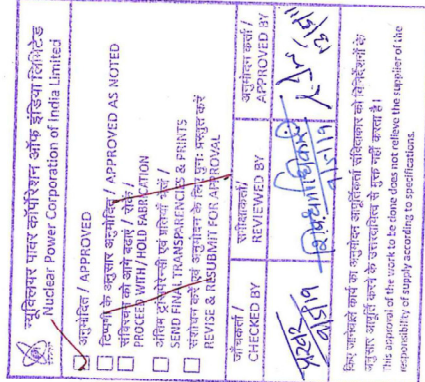 न्यूक्लियर पावर कॉर्पोरेशन ऑफ इंडिया लिमिटेड
Nuclear Power Corporation of India Limited
अनुमोदित / APPROVED
टिप्पणी के अनुसार अनुमोदित / APPROVED AS NOTED
संविरचन को आगे बढ़ाएं / रोकें /
PROCEED WITH/HOLD FABRICATION
अंतिम ट्रांसपेरेन्सी एवं प्रतियाँ भेजें /
SEND FINAL TRANSPARENCIES & PRINTS
संशोधन करें एवं अनुमोदन के लिए पुनः प्रस्तुत करें
REVISE & RESUBMIT FOR APPROVAL
जाँचकर्ता /
CHECKED BY
समीक्षाकर्ता /
REVIEWED BY
अनुमोदन कर्ता /
APPROVED BY
किए जानेवाले कार्य का अनुमोदन आपूर्तिकर्ता संविदाकार को विनिर्देशों के
अनुसार आपूर्ति करने के उत्तरदायित्व से मुक्त नहीं करता है।
This approval of the work to be done does not relieve the supplier of the
responsibility of supply according to specification.